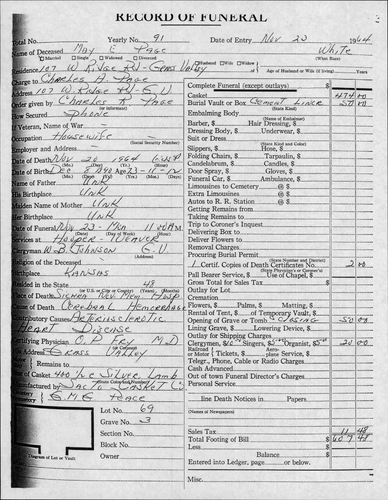 RECORD OF FUNERAL
Total No. Yearly No. 91 Date of Entry Nov 23 1964
Name of Deceased May E Page White
(What Race)
Married Single Widowed Divorced Husband Wife Widow
Residence 107 W Ridge Rd Grass Valley Age of Husband or Wife (if living) Years
Charge to Charles A. Page Complete Funeral (except outlays) $
Address 107 W Ridge Rd G.V. Casket 474 00
Order given by Charles A. Page Burial Vault or Box Cement Liner 57 00
How Secured Phone Embalming Body
(State Kind)
(Name of Embalmer)
If Veteran, Name of War Barber, $ Hair Dressing, $
Occupation Housewife Dressing Body, $ Underwear, $
(Social Security Number) Suit or Dress
(State Kind and Color)
Employer and Address Slippers, $ Hose, $
Date of Death Nov 20 1964 Folding Chairs, $ Tarpaulin, $
Candelabrum, $ Candles, $
Date of Birth Dec 8 1890 Age 73-11-12 Door Spray, $ Gloves, $
Name of Father Unk Funeral Car, $ Ambulance, $
His Birthplace Unk Limousines to Cemetery @ $
Limousines Extra @ $
Maiden Name of Mother Unk Autos to R. R. Station @ $
Her Birthplace Unk Getting Remains from
Taking Remains to
Date of Funeral Nov 23 - Mon 11:00 AM Trip to Coroner's Inquest
Services at Hooper-Weaver Delivering Box to
Deliver Flowers to
Clergyman W.B. Johnson G.V. Removal Charges
Procuring Burial Permit
(State Number and District)
Birthplace Kansas 1 Certif. Copies of Death Certificates No. 2 00
(State Physician's or Coroner's)
Resided in the State 48 Pall Bearer Service, $ Use of Chapel, $
Gross Total for Sales Tax $
Place of Death Sierra Nev Mem Hosp. Outlay for Lot
Cause of Death Cerebral Hemorrhage Cremation
Contributory Causes Arteriosclerotic Flowers, $ Palms, $ Matting, $
Rental of Tent, $ of Temporary Vault, $
Heart Disease Opening of Grave or Tomb 50 00
Lining Grave, $ Lowering Device, $
Certifying Physician O P Fry MD Outlay for Shipping Charges
His Address Grass Valley Clergymen, $10 Singers, $5 Organist, $5 20 00
Railroad or Motor Tickets, $ Aero-plane Service, $
Remains to Telegr., Phone, Cable or Radio Charges
Cash Advanced
of Casket Silver Lamb Out of town Funeral Director's Charges
Manufactured by Sacto Casket Co Personal Service
line Death Notices in Papers.
Lot No. 69
(Names of Newspapers)
Grave No. 3
Section No. Sales Tax 11 48
Block No. Total Footing of Bill $
Less
Owner Balance $
Diagram of Lot or Vault Entered into Ledger, page or below.
Misc.